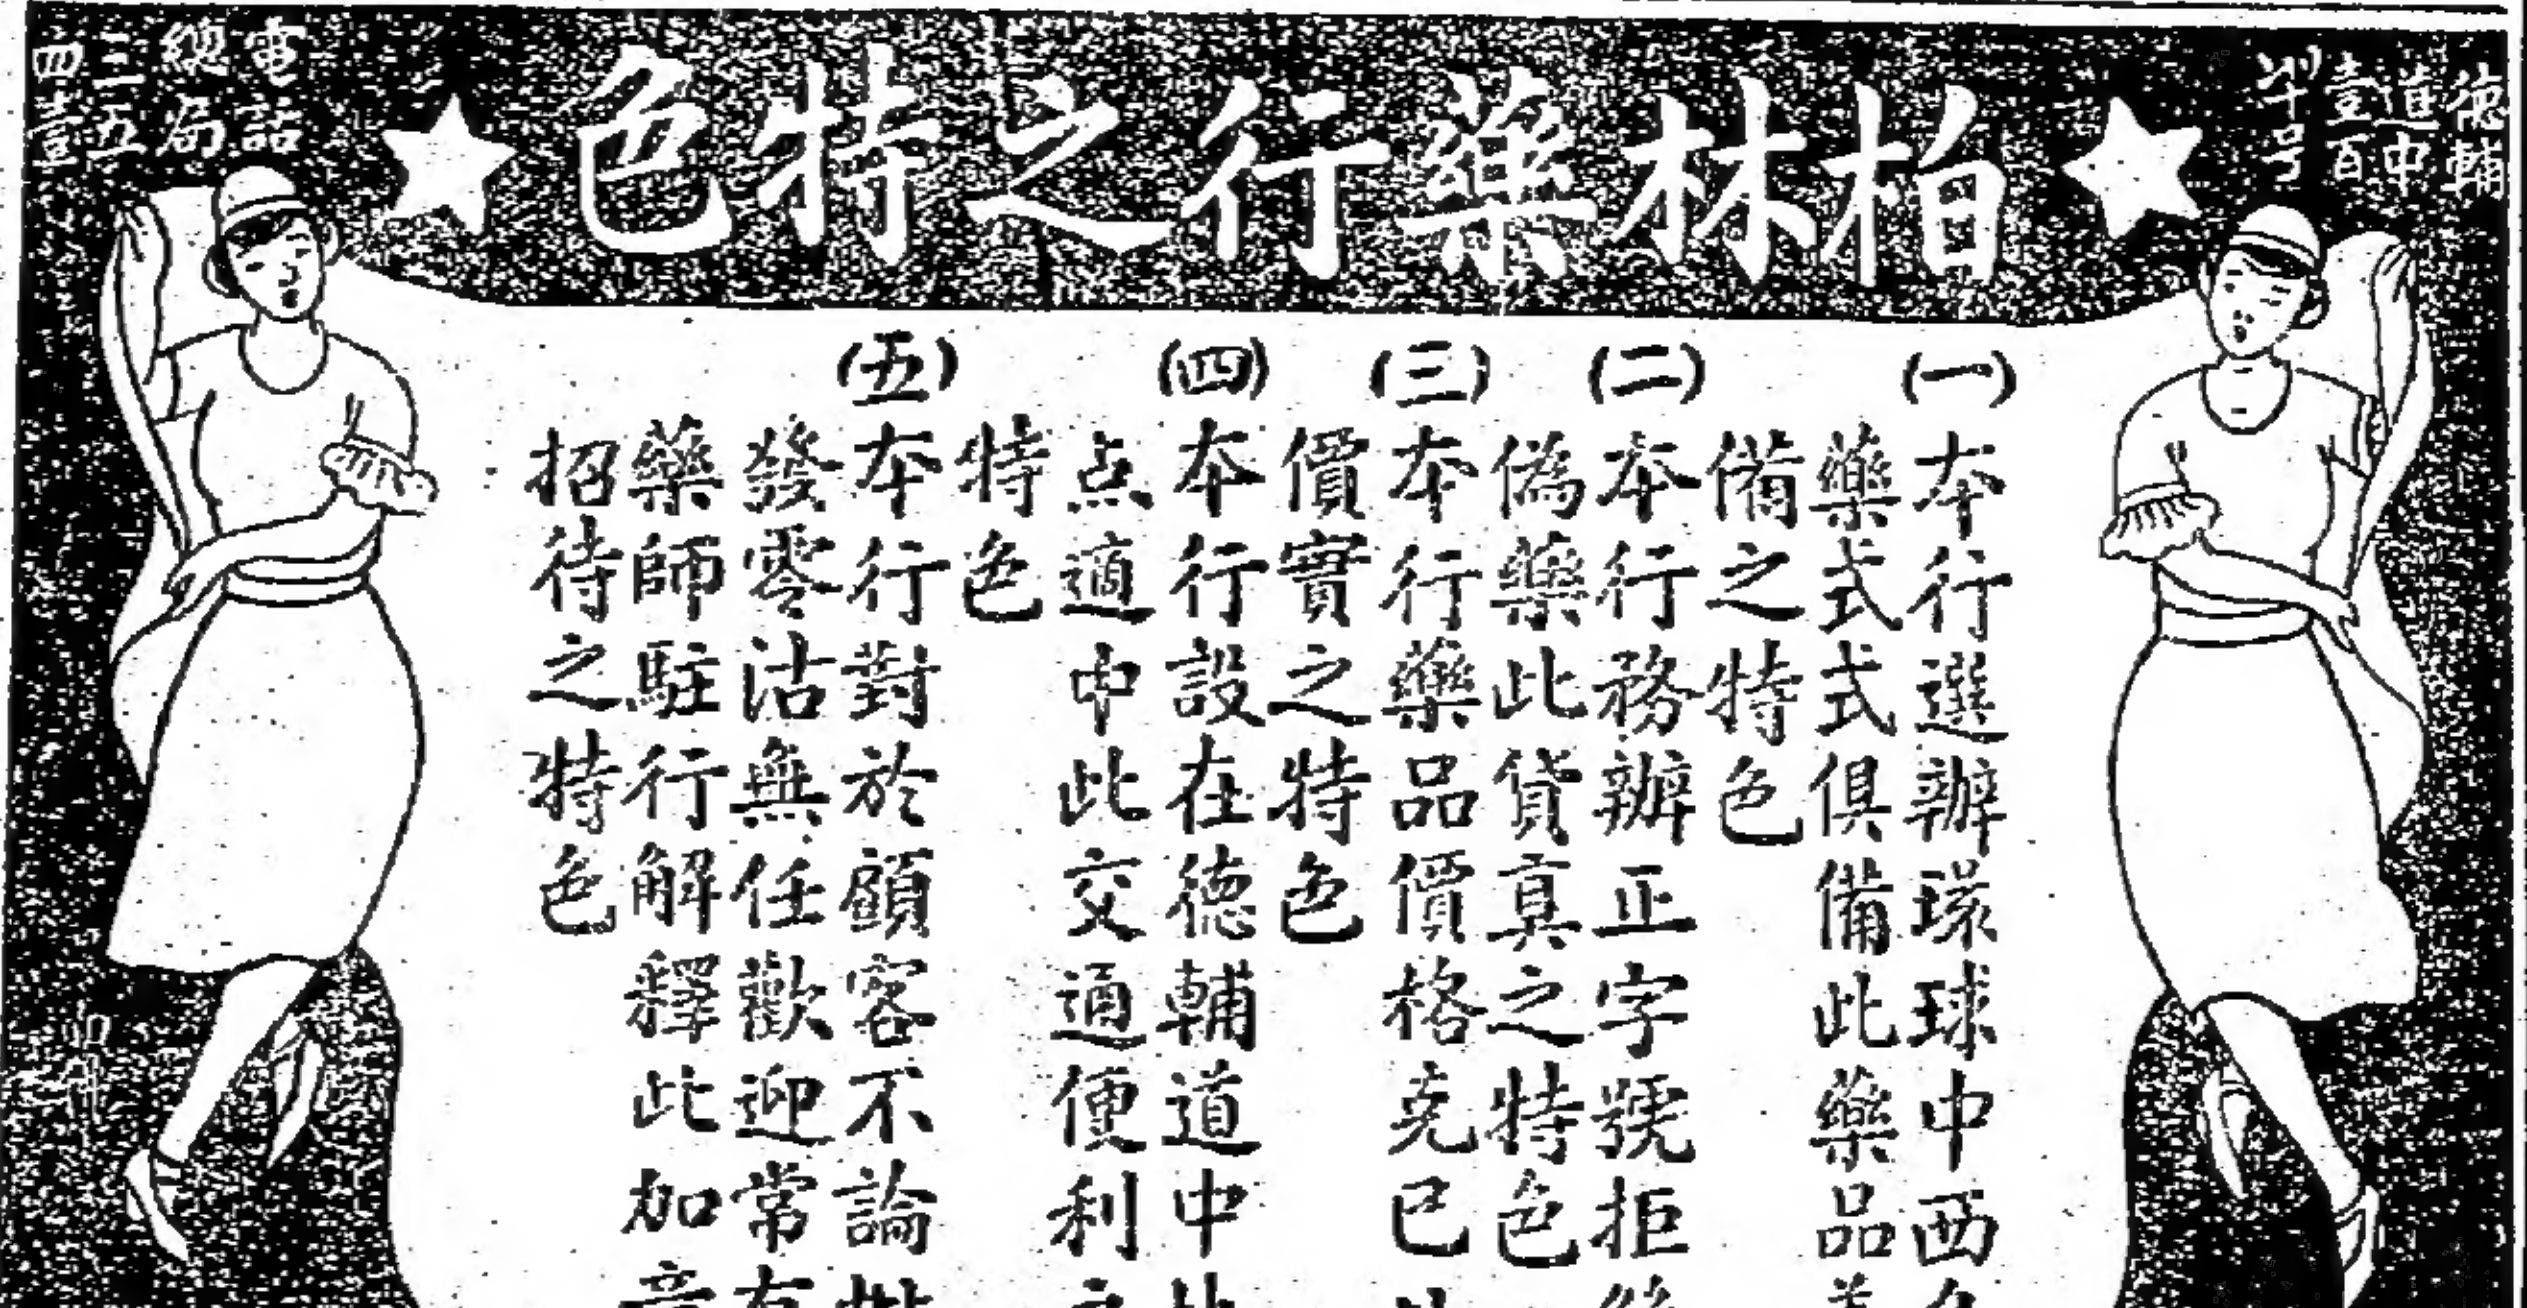 柏林藥行之特色
德輔
道中
壹百
号
電話
總局
三五
四壹
(一)本行選辦環球中西
藥式式俱備此藥品
備之特色
(二)本行務辦正字號拒絕
偽藥此貨真之特色
(三)本行藥品價格克已
價實之特色
(四)本行設在德輔道中
点適中此交通便利之
特色
(五)本行對於顧客不論批
發零沽無任歡迎常有
藥師駐行解釋此加意
招待之特色